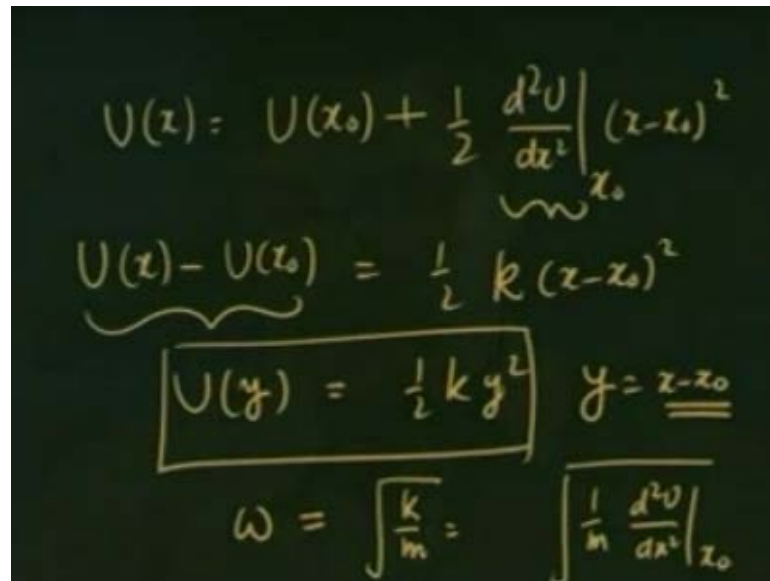 U(x) = U(x₀) + 1/2 d²U/dx² |ₓ₀ (x-x₀)²
U(x) - U(x₀) = 1/2 k (x-x₀)²
U(y) = 1/2 k y² y = x-x₀
ω = √(k/m) = √(1/m d²U/dx² |ₓ₀)